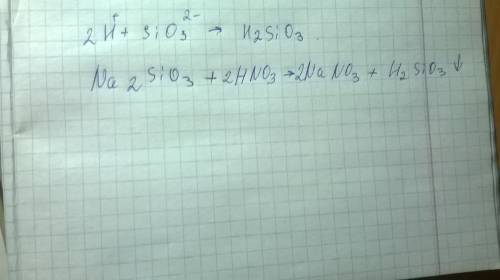 2H⁺ + SiO₃²⁻ → H₂SiO₃.
Na₂SiO₃ + 2HNO₃ → 2NaNO₃ + H₂SiO₃↓